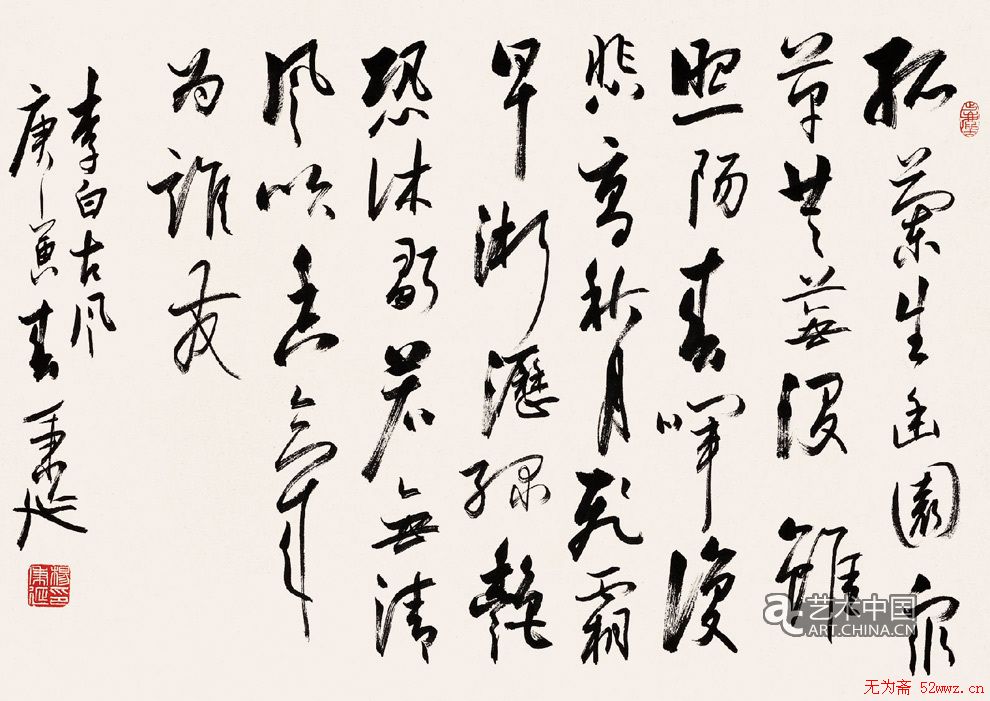 孤蘭生幽園眾
草共蕪沒雖
照陽春暉復
悲高秋月飛霜
早淅瀝綠艷
恐休歇若無清
風吹香氣
为誰發
李白古風
庚寅春
艺术中国
ART.CHINA.CN
无为斋 52wwz.cn